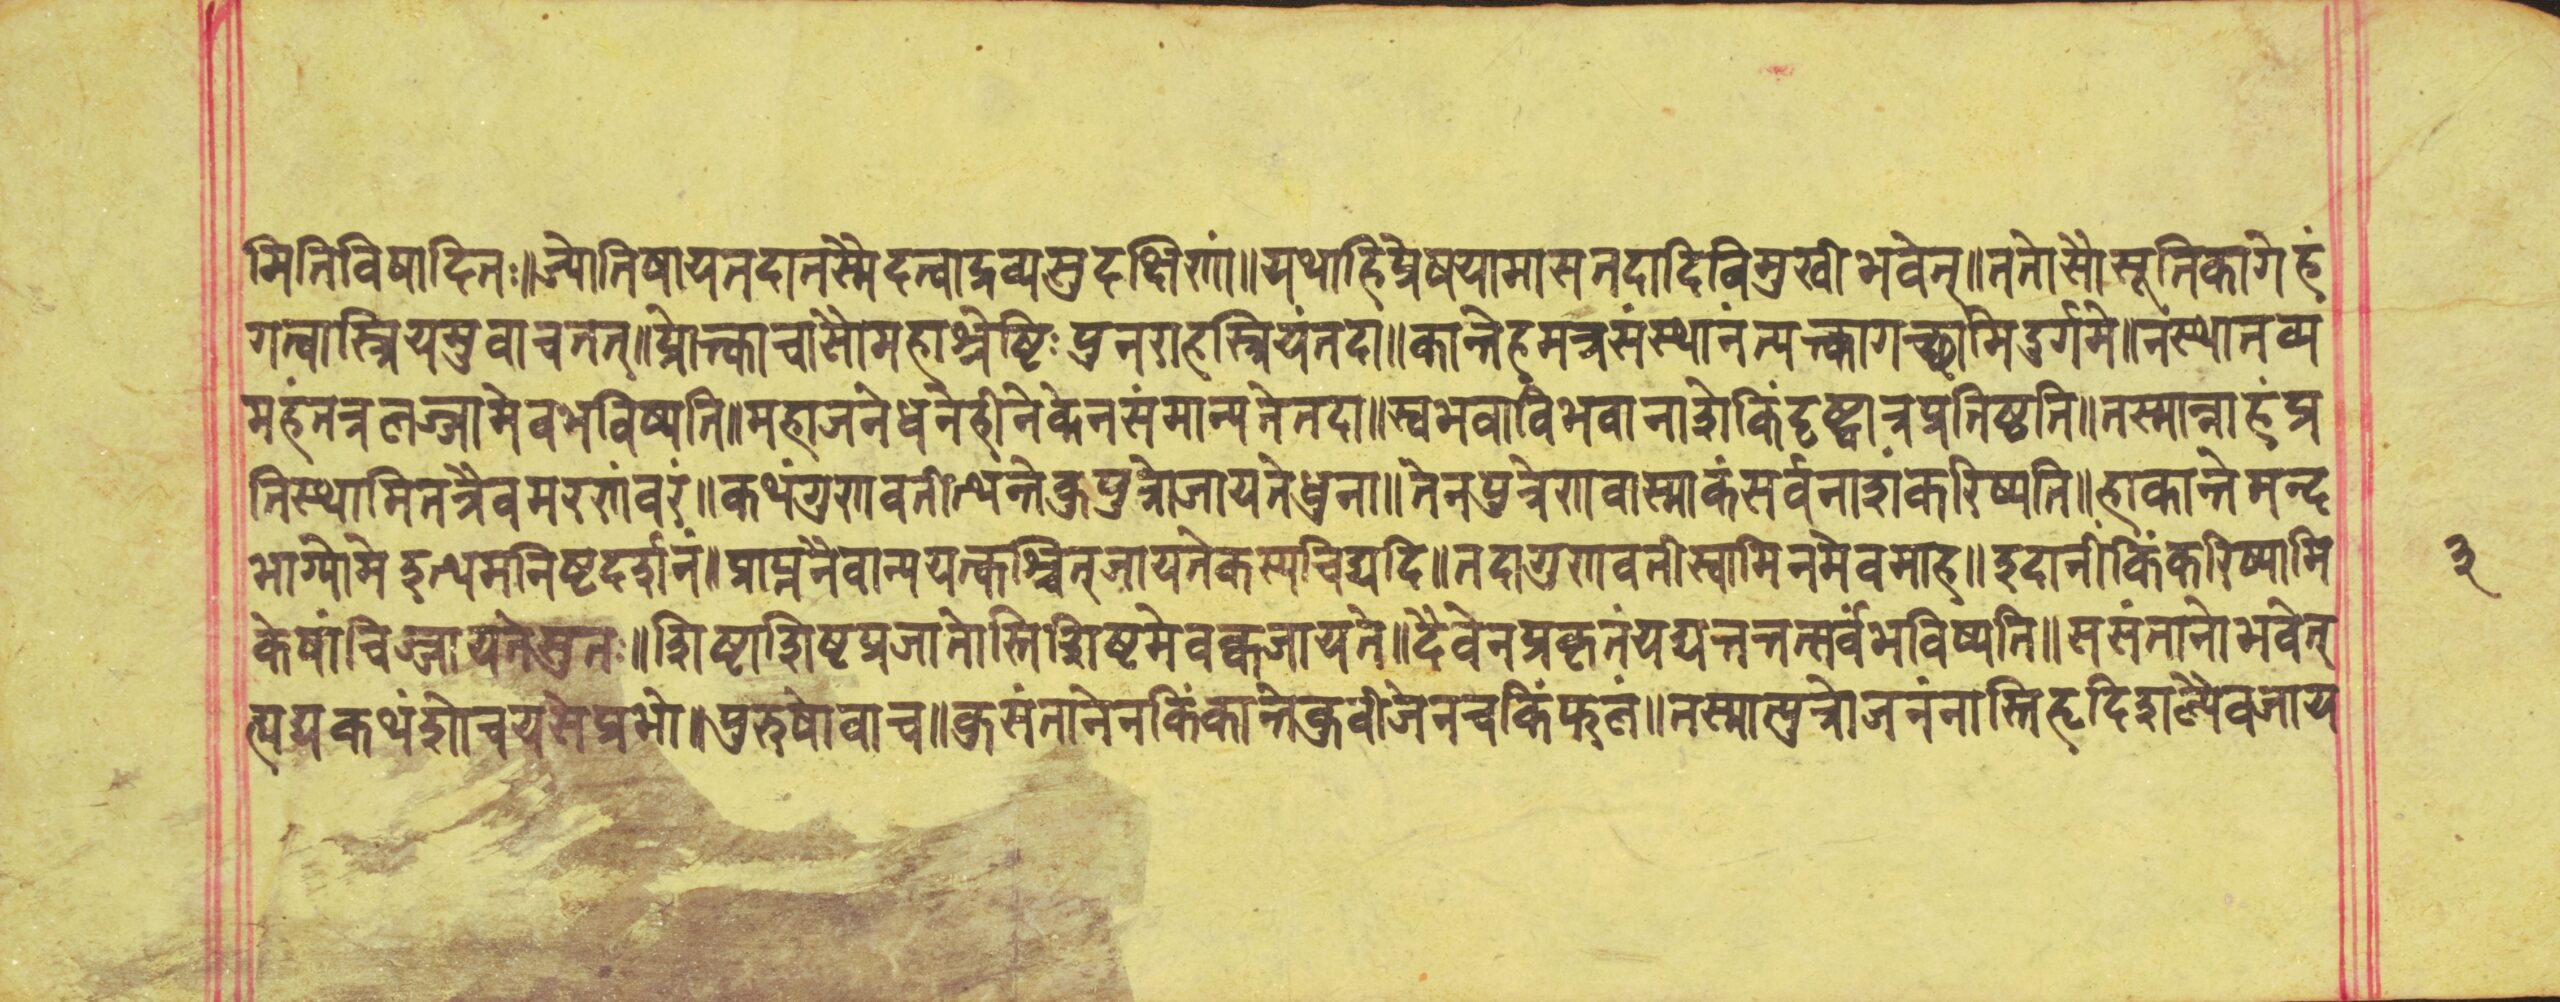 मितिविषादितः॥ज्योतिषायतदातस्मैदत्वाद्रव्यसुदक्षिणां॥यथाहिप्रेषयामासतदादिविमुखीभवेत्॥ततोसौसूतिकागेहं
गत्वास्त्रियमुवाचतत्॥प्रोक्त्काचासौमहाश्रेष्टिःपुनराहस्त्रियंतदा॥कान्तेहमत्रसंस्थानंत्यक्त्कागच्छामिदुर्गमे॥नस्थातव्य
महंतत्रलज्जामेवभविष्यति॥महाजनेधनैर्हीनेकेनसंमान्यतेतदा॥स्वभवाविभवानाशेकिंदृष्ट्वात्रप्रतिष्ठति॥तस्मान्नाहंप्र
तिस्थामितत्रैवमरणंवरं॥कथंगुणवतीत्थंतेकुपुत्रोजायतेधुना॥तेनपुत्रेणवास्माकंसर्वनाशंकरिष्यति॥हाकान्तेमन्द
भाग्योमेइत्थमनिष्टदर्शनं॥प्राप्तनैवान्ययत्कश्चित्जायतेकस्यचिद्यदि॥तदागुणवतीस्वामिनमेवमाह॥इदानींकिंकरिष्यामि
केषांचिज्जायतेसुतः॥शिष्टाशिष्टप्रजातोस्तिशिष्टमेवक्वजायते॥दैवेनप्रकृतंयद्यत्तत्तत्सर्वंभविष्यति॥ससंतानोभवेत्
त्यद्यकथंशोचयसेप्रभो॥पुरुषोवाच॥कुसंतानेनकिंकान्तेकुवीजेनचकिंफलं॥तस्मात्पुत्रोजनंनास्तिहृदिशल्यैवजाय
३